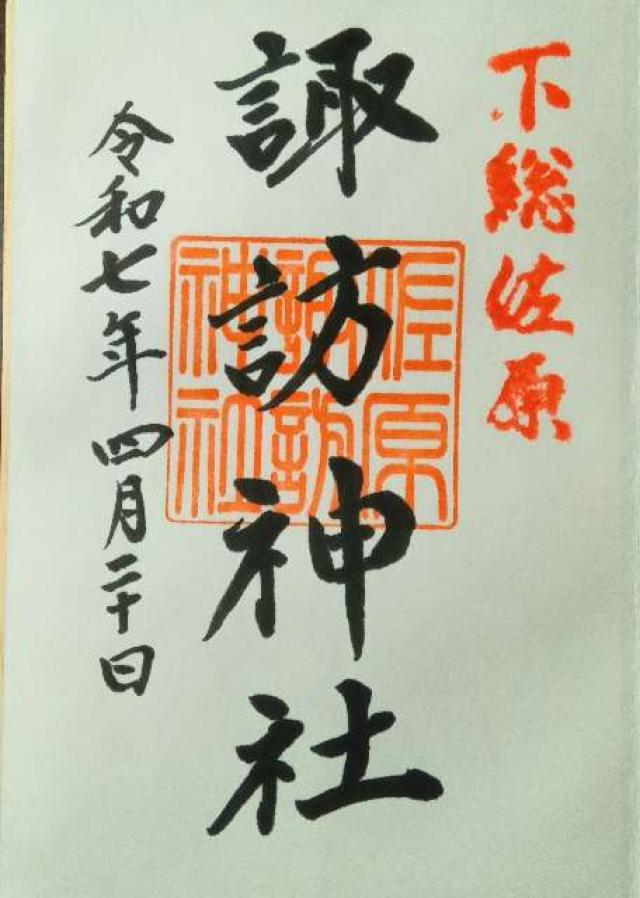 下総佐原
諏訪神社
佐原
諏訪
神社
令和七年四月二十日